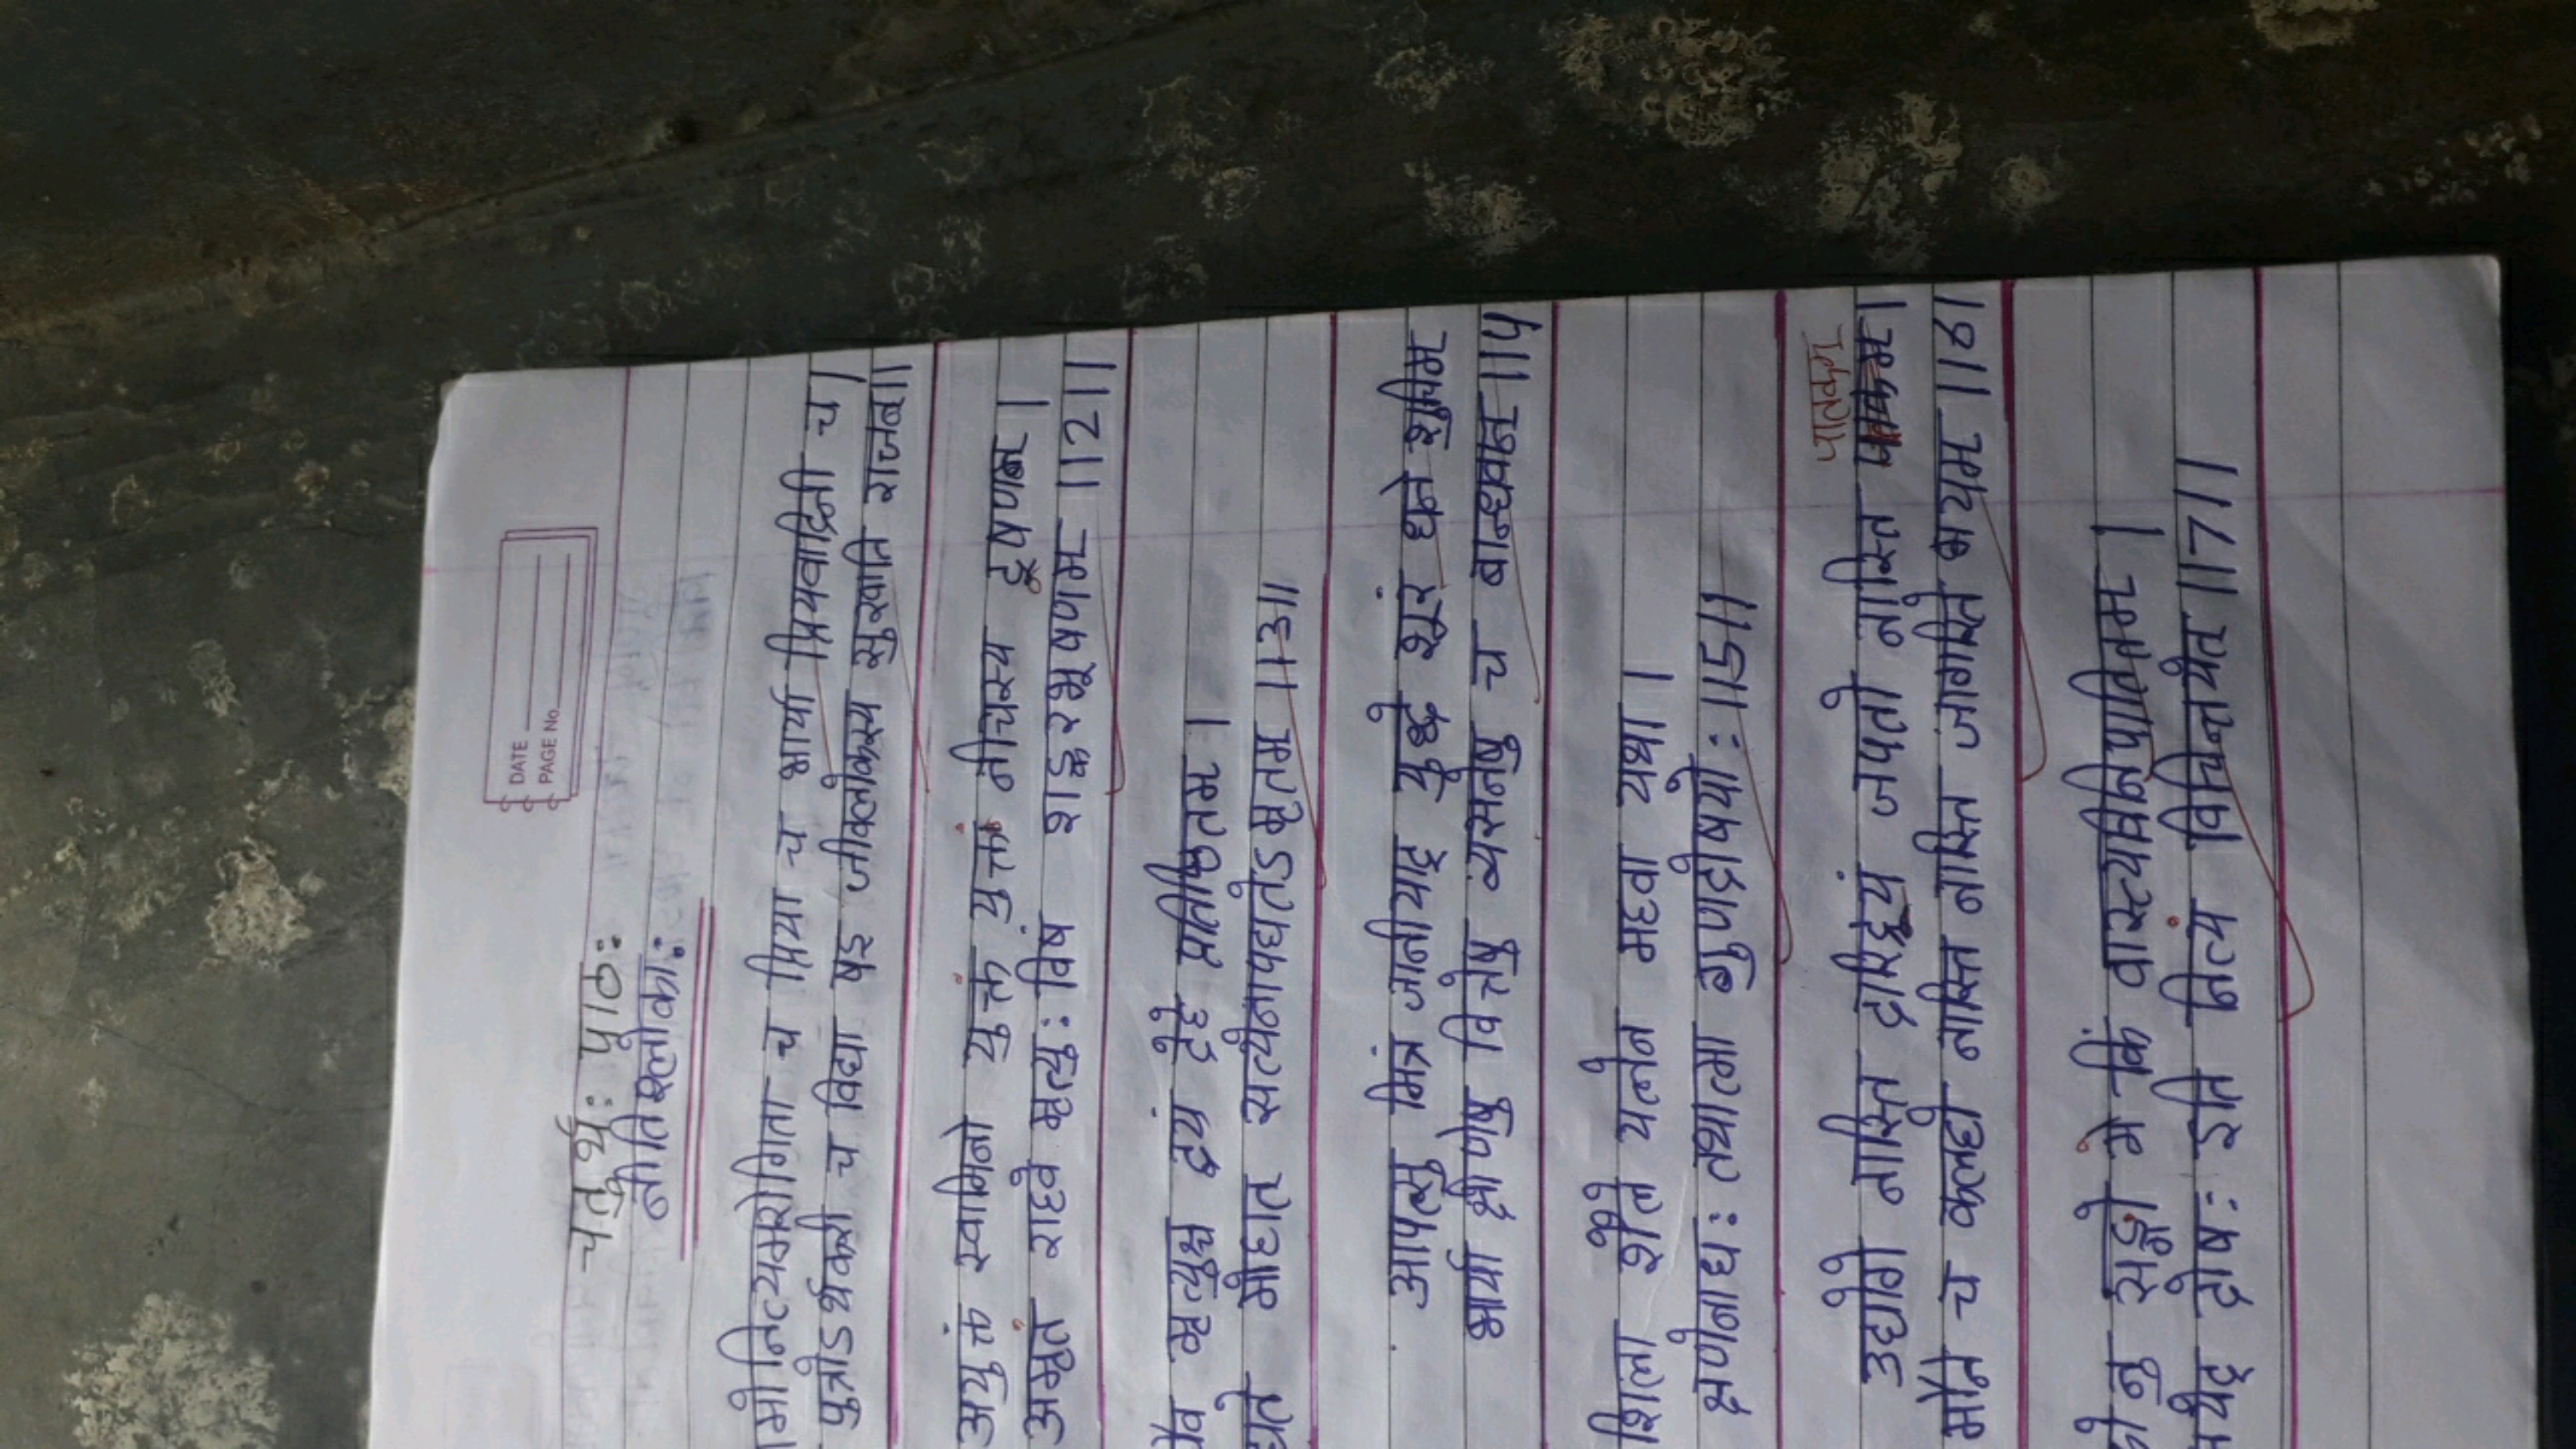 DATE
PAGE No.
चतुर्थ: पाठ:
नीतिश्लोका:
नित्यमरोगिता च प्रिया च भार्या प्रियवादिनी च।
पुत्रोऽर्थकरी च विद्या षड् जीवलोकस्य सुखानि राजन॥
अयुक्तं स्वामिनो युक्तं युक्तं नीचस्य दूषणम।
अमृतं राहवे मृत्यु: विषं शङ्करभूषणम ॥2॥
मृत्युश्च द्वयं देहे प्रतिष्ठितम।
मोहात सत्येनापद्यतेऽमृतम ॥3॥
आपत्सु मित्रं जानीयाद् युद्धे शूरं धने शुचिम
भार्या क्षीणेषु वित्तेषु व्यसनेषु च बान्धवान ॥4
शिला शैले यत्नेन महवा यथा।
क्षणेनाध: तथात्मा गुणदोषयो: ॥5॥
पातकम
उद्योगे नास्ति दारिद्र्यं जपतो नास्ति
मौने च कलहो नास्ति नास्ति जागरिते भयम ॥6।
नु सङ्गो मे किं वास्त्यविनिपातितम।
दोष: इति नित्यं विचिन्तयेत ॥7॥